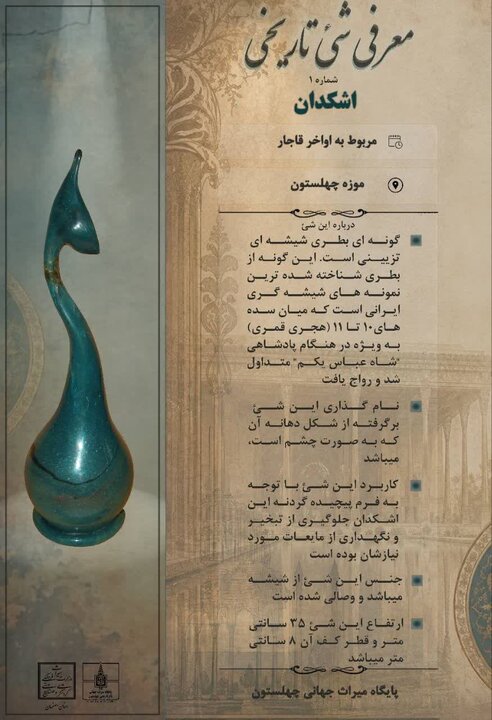 معرفی شئ تاریخی
شماره ۱
اشکدان
مربوط به اواخر قاجار
موزه چهلستون
درباره این شئ
گونه ای بطری شیشه ای
تزیینی است. این گونه از
بطری شناخته شده ترین
نمونه های شیشه گری
ایرانی است که میان سده
های ۱۰ تا ۱۱ (هجری قمری)
به ویژه در هنگام پادشاهی
"شاه عباس یکم" متداول
شد و رواج یافت
نام گذاری این شئ
برگرفته از شکل دهانه آن
که به صورت چشم است،
میباشد
کاربرد این شئ با توجه
به فرم پیچیده گردنه این
اشکدان جلوگیری از تبخیر
و نگهداری از مایعات مورد
نیازشان بوده است
جنس این شئ از شیشه
میباشد و وصالی شده است
ارتفاع این شئ ۳۵ سانتی
متر و قطر کف آن ۸ سانتی
متر میباشد
پایگاه میراث جهانی چهلستون